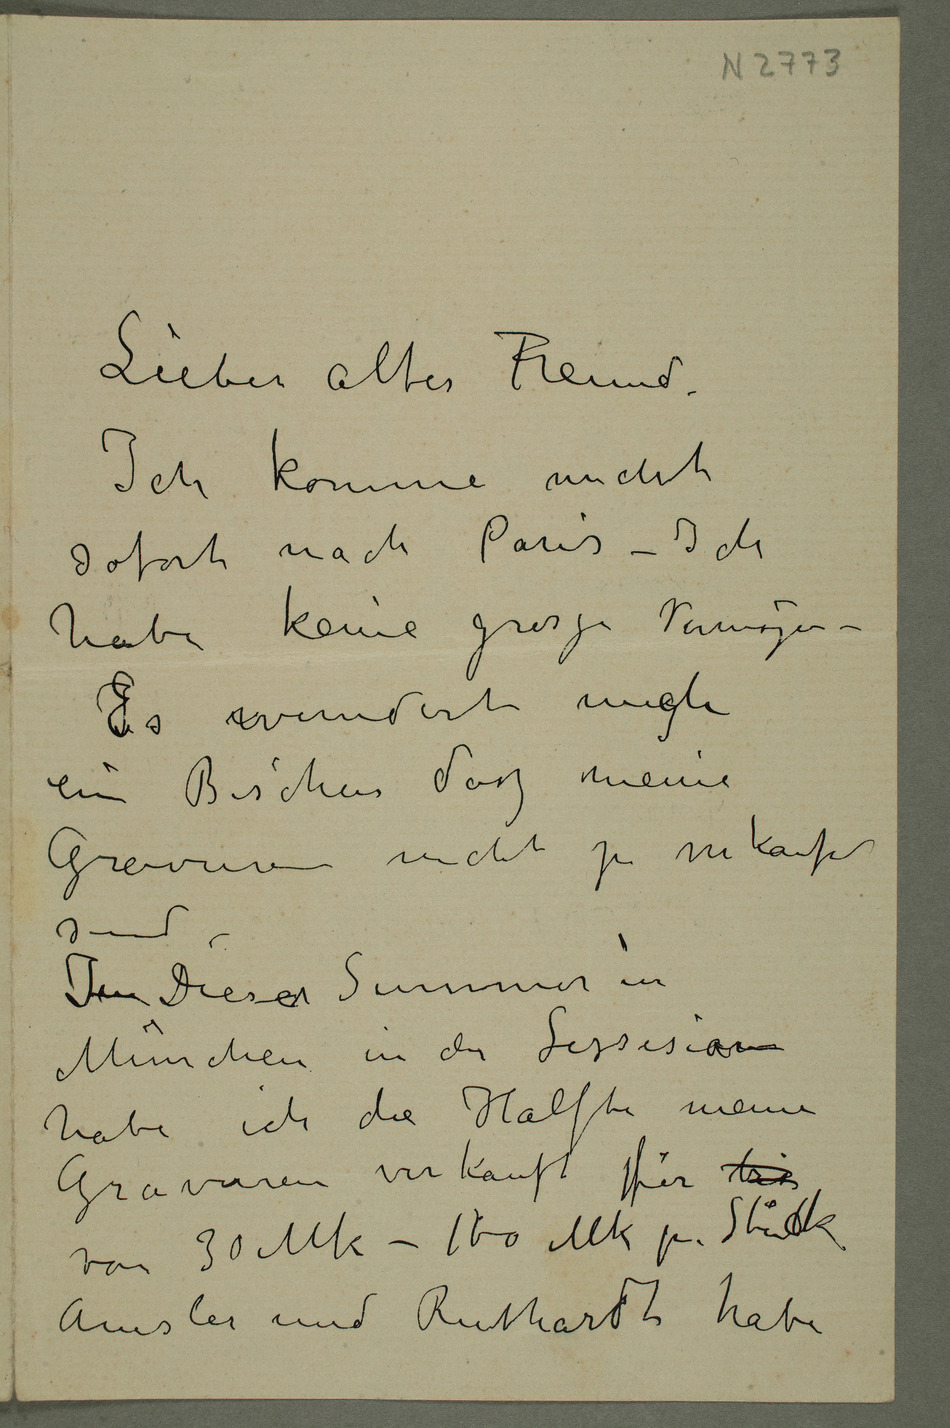 N 2773
Lieber alter Freund.
Ich komme nicht
sofort nach Paris – Ich
habe keine grosse Vermögen –
Es wundert migh
ein Bischen dasz meine
Gravuren nicht zu verkaufen
sind –
Dieser Summer in
München in der Sezsesion
habe ich die Hälfte meine
Gravuren verkauft für
von 30 Mk – 160 Mk pr. Stück
Amsler und Ruthardt habe